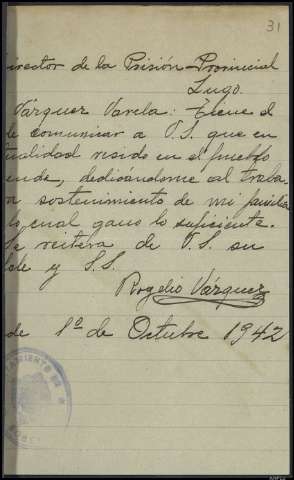 31
irector de la Prisión Provincial
Lugo.
Vázquez Varela: Tiene el
de comunicar a V.S. que en
tualidad resido en el pueblo
ende, dedicándome al traba-
a sostenimiento de mi familia
lo cual gano lo suficiente.
Se reitera de V.S. su
ble y S.S.
Rogelio Vázquez
de 1º de Octubre 1942
AMIENTO DE